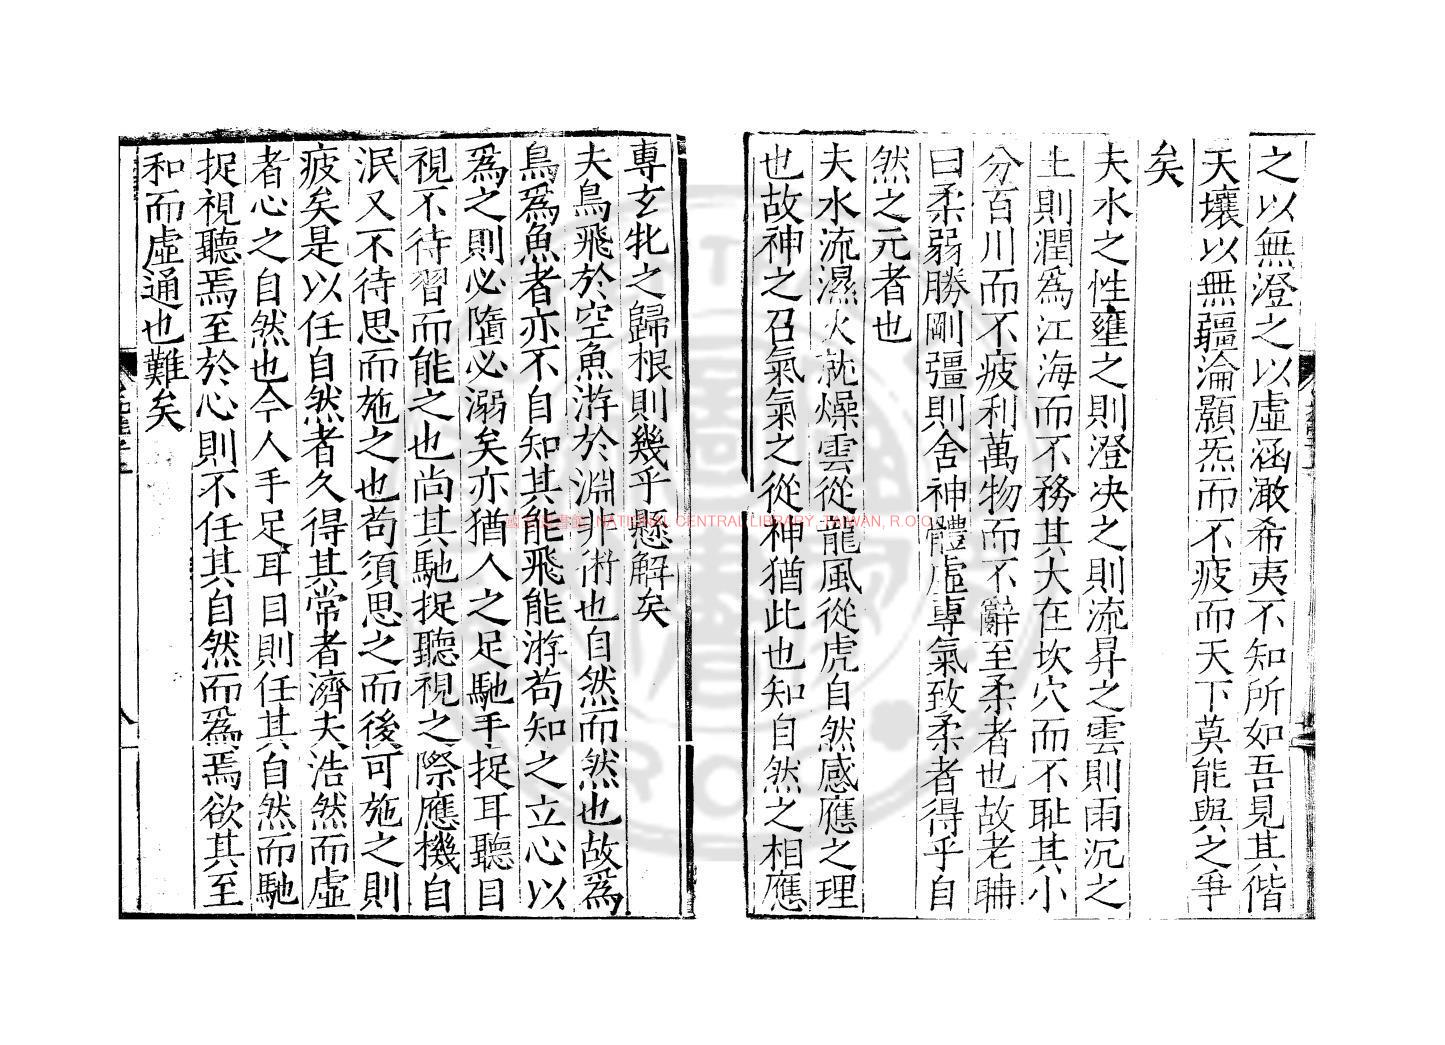 之以無澄之以虛涵澈希夷不知所如吾見其偕
天壤以無疆淪顥炁而不疲而天下莫能與之爭
矣
夫水之性壅之則澄决之則流昇之雲則雨沉之
土則潤爲江海而不務其大在坎穴而不耻其小
分百川而不疲利萬物而不辭至柔者也故老聃
曰柔弱勝剛彊則舍神體虛專氣致柔者得乎自
然之元者也
夫水流濕火就燥雲從龍風從虎自然感應之理
也故神之召氣氣之從神猶此也知自然之相應
專玄牝之歸根則幾乎懸解矣
夫鳥飛於空魚游於淵非術也自然而然也故爲
鳥爲魚者亦不自知其能飛能游苟知之立心以
爲之則必墮必溺矣亦猶人之足馳手捉耳聽目
視不待習而能之也尚其馳捉聽視之際應機自
泯又不待思而施之也苟須思之而後可施之則
疲矣是以任自然者久得其常者濟夫浩然而虛
者心之自然也今人手足耳目則任其自然而馳
捉視聽焉至於心則不任其自然而爲焉欲其至
和而虛通也難矣
八
國家圖書館, NATIONAL CENTRAL LIBRARY, TAIWAN, R.O.C